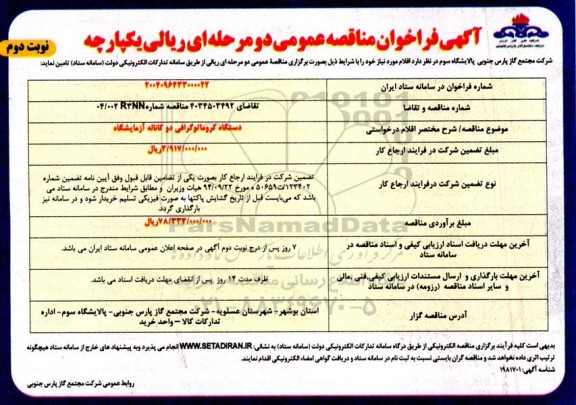 نوبت دوم
آگهی فراخوان مناقصه عمومی دو مرحله ای ریالی یکپارچه
شرکت مجتمع گاز پارس جنوبی پالایشگاه سوم در نظر دارد اقلام مورد نیاز خود را با شرایط ذیل بصورت برگزاری مناقصه عمومی دو مرحله ای ریالی از طریق سامانه تدارکات الکترونیکی دولت (سامانه ستاد) تامین نماید:
شماره فراخوان در سامانه ستاد ایران
۲۰۰۴۰۹۶۴۳۳۰۰۰۰۲۲
شماره مناقصه و تقاضا
تقاضای ۴۰۳۴۵۰۳۴۹۲ مناقصه شماره R۳NN-۰۴/۰۰۲
موضوع مناقصه/ شرح مختصر اقلام درخواستی
دستگاه کروماتوگرافی دو کاناله آزمایشگاه
مبلغ تضمین شرکت در فرایند ارجاع کار
۳/۹۱۷/۰۰۰/۰۰۰ریال
نوع تضمین شرکت درفرایند ارجاع کار
تضمین شرکت در فرایند ارجاع کار بصورت یکی از تضامین قابل قبول وفق آیین نامه تضمین شماره
۱۲۳۴۰۲/ت۵۰۶۵۹ ه مورخ ۹۴/۰۹/۲۲ هیات وزیران و مطابق شرایط مندرج در سامانه ستاد می
باشد که می‌بایست قبل از تاریخ گشایش پاکتها به صورت فیزیکی تسلیم خریدار شود و در سامانه نیز
بارگذاری گردد.
مبلغ برآوردی مناقصه
۷۸/۳۳۲/۰۰۰/۰۰۰ریال
آخرین مهلت دریافت اسناد ارزیابی کیفی و اسناد مناقصه در
سامانه ستاد
۷ روز پس از درج نوبت دوم آگهی در صفحه اعلان عمومی سامانه ستاد ایران می باشد.
آخرین مهلت بارگذاری و ارسال مستندات ارزیابی کیفی،فنی ،مالی
و سایر اسناد مناقصه (رزومه) در سامانه ستاد
ظرف مدت ۱۴ روز پس از انقضای مهلت دریافت اسناد می باشد.
آدرس مناقصه گزار
استان بوشهر- شهرستان عسلویه- شرکت مجتمع گاز پارس جنوبی- پالایشگاه سوم- اداره
تدارکات کالا – واحد خرید
بدیهی است کلیه فرآیند برگزاری مناقصه الکترونیکی از طریق درگاه سامانه تدارکات الکترونیکی دولت (سامانه ستاد) به نشانی: WWW.SETADIRAN.IR انجام می پذیرد وبه پیشنهاد های خارج از سامانه ستاد هیچگونه
ترتیب اثری داده نخواهد شد و مناقصه گران بایستی نسبت به ثبت نام در سامانه ستاد و دریافت گواهی امضاء الکترونیکی اقدام نمایند.
شناسه آگهی: ۱۹۸۱۷۰۱
روابط عمومی شرکت مجتمع گاز پارس جنوبی
ParsNamadData
۰۲۱-۸۸۳۴۹۶۷۰-۵